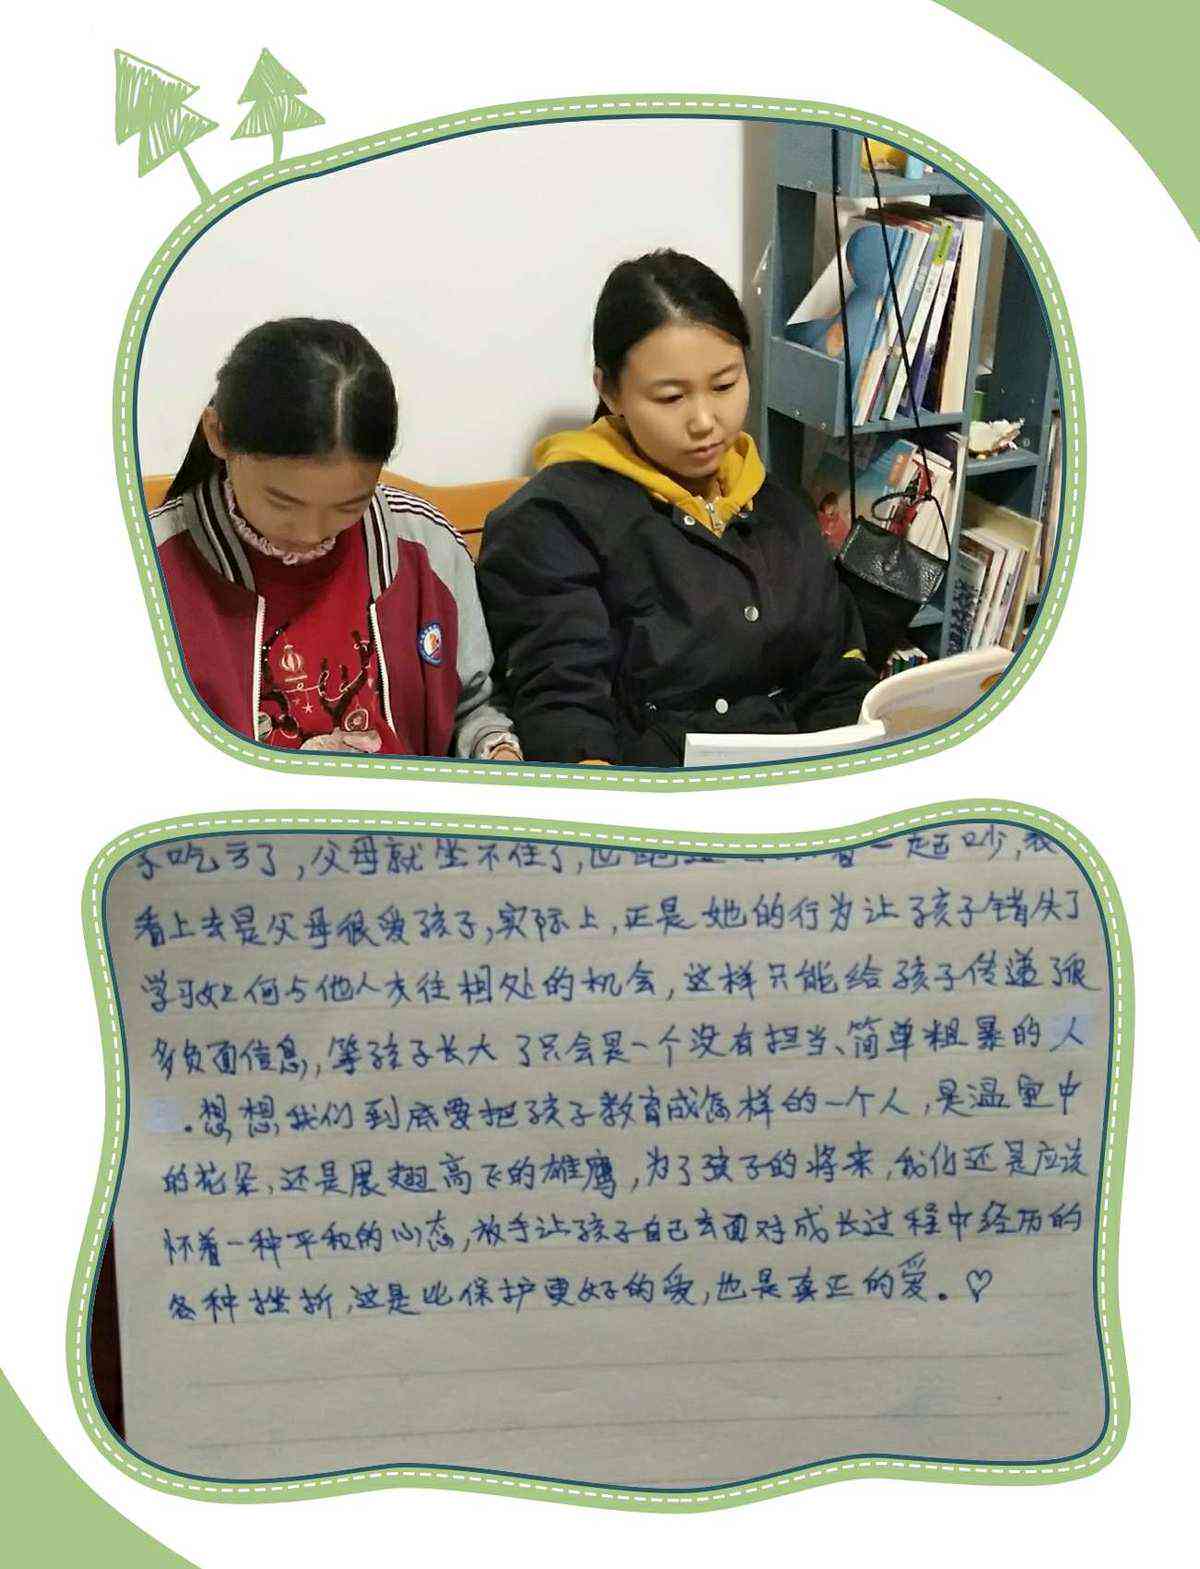 子吃亏了,父母就坐不住了,也跑 一起吵,表
看上去是父母很爱孩子,实际上,正是她的行为让孩子错失了
学习如何与他人交往相处的机会,这样只能给孩子传递了很
多负面信息,等孩子长大了只会是一个没有担当、简单粗暴的人
.想想我们到底要把孩子教育成怎样的一个人,是温室中
的花朵,还是展翅高飞的雄鹰,为了孩子的将来,我们还是应该
怀着一种平和的心态,放手让孩子自己去面对成长过程中经历的
各种挫折,这是比保护更好的爱,也是真正的爱。♡